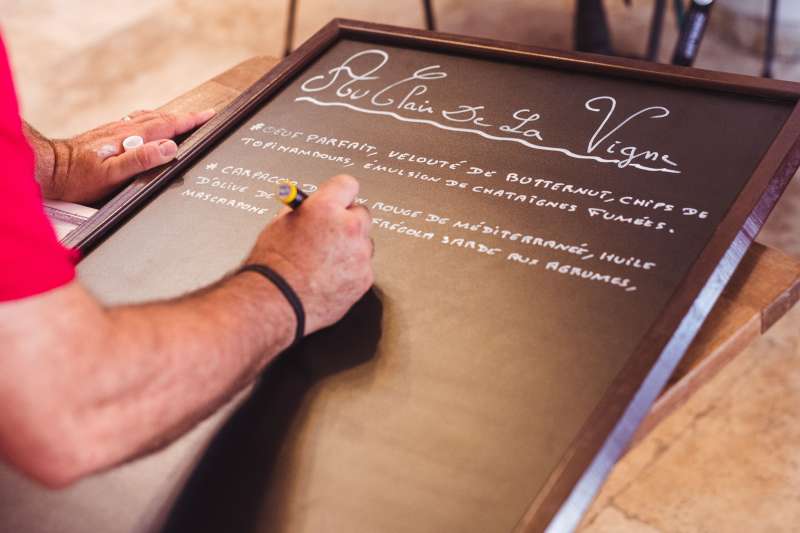 Au Clair De La Vigne
#OEUF PARFAIT, VELOUTÉ DE BUTTERNUT, CHIPS DE
TOPINAMBOURS, ÉMULSION DE CHATAÎGNES FUMÉES.
# CARPACCIO D ROUGE DE MÉDITERRANÉE, HUILE
D'OLIVE DE FRÉGOLA SARDE AUX AGRUMES,
MASCARPONE